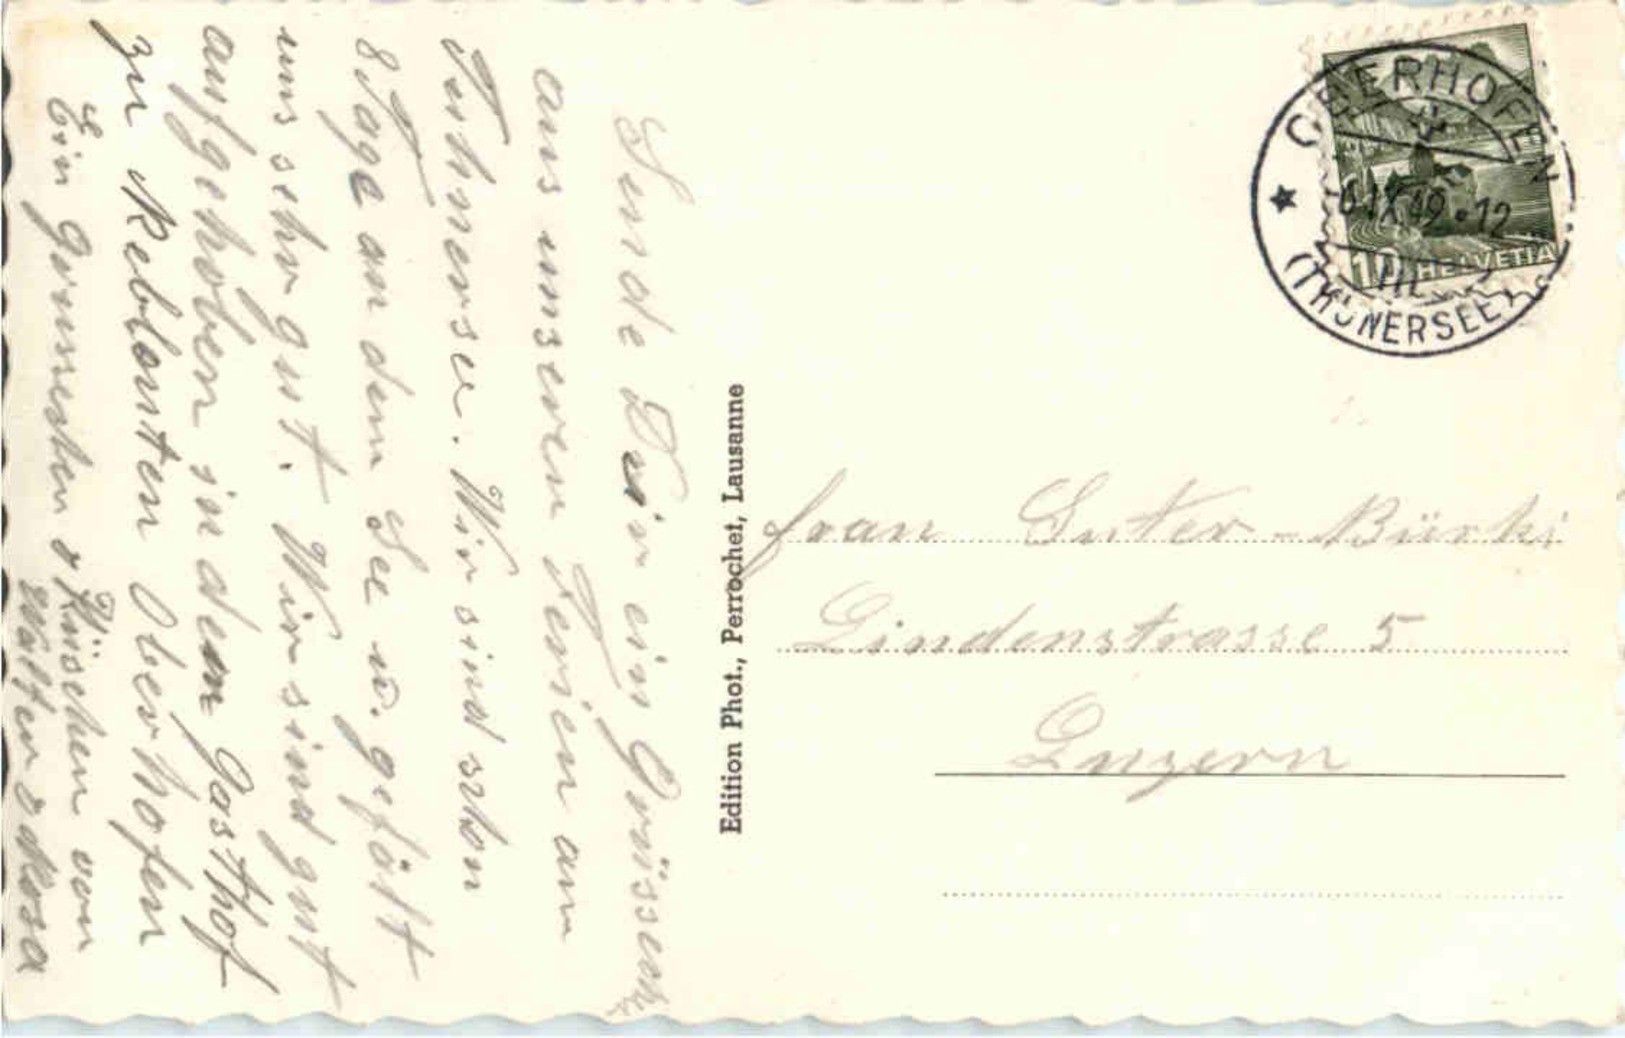 Sende Dir ein Grüssen
aus unseren Ferien am
Tuhnersee. Wir sind schon
8 Tage an dem See u. gefällt
uns sehr gut. Wir sind gut
aufgehoben in dem Gasthof
zu Rebleuten Oberhofen
Ein & Küsschen von
Walter & Rosa
Edition Phot., Perrochet, Lausanne
OBERHOFEN
(THUNERSEE)
IX 49 · 12
10 HELVETIA
frau Suter-Bürki
Lindenstrasse 5
Luzern